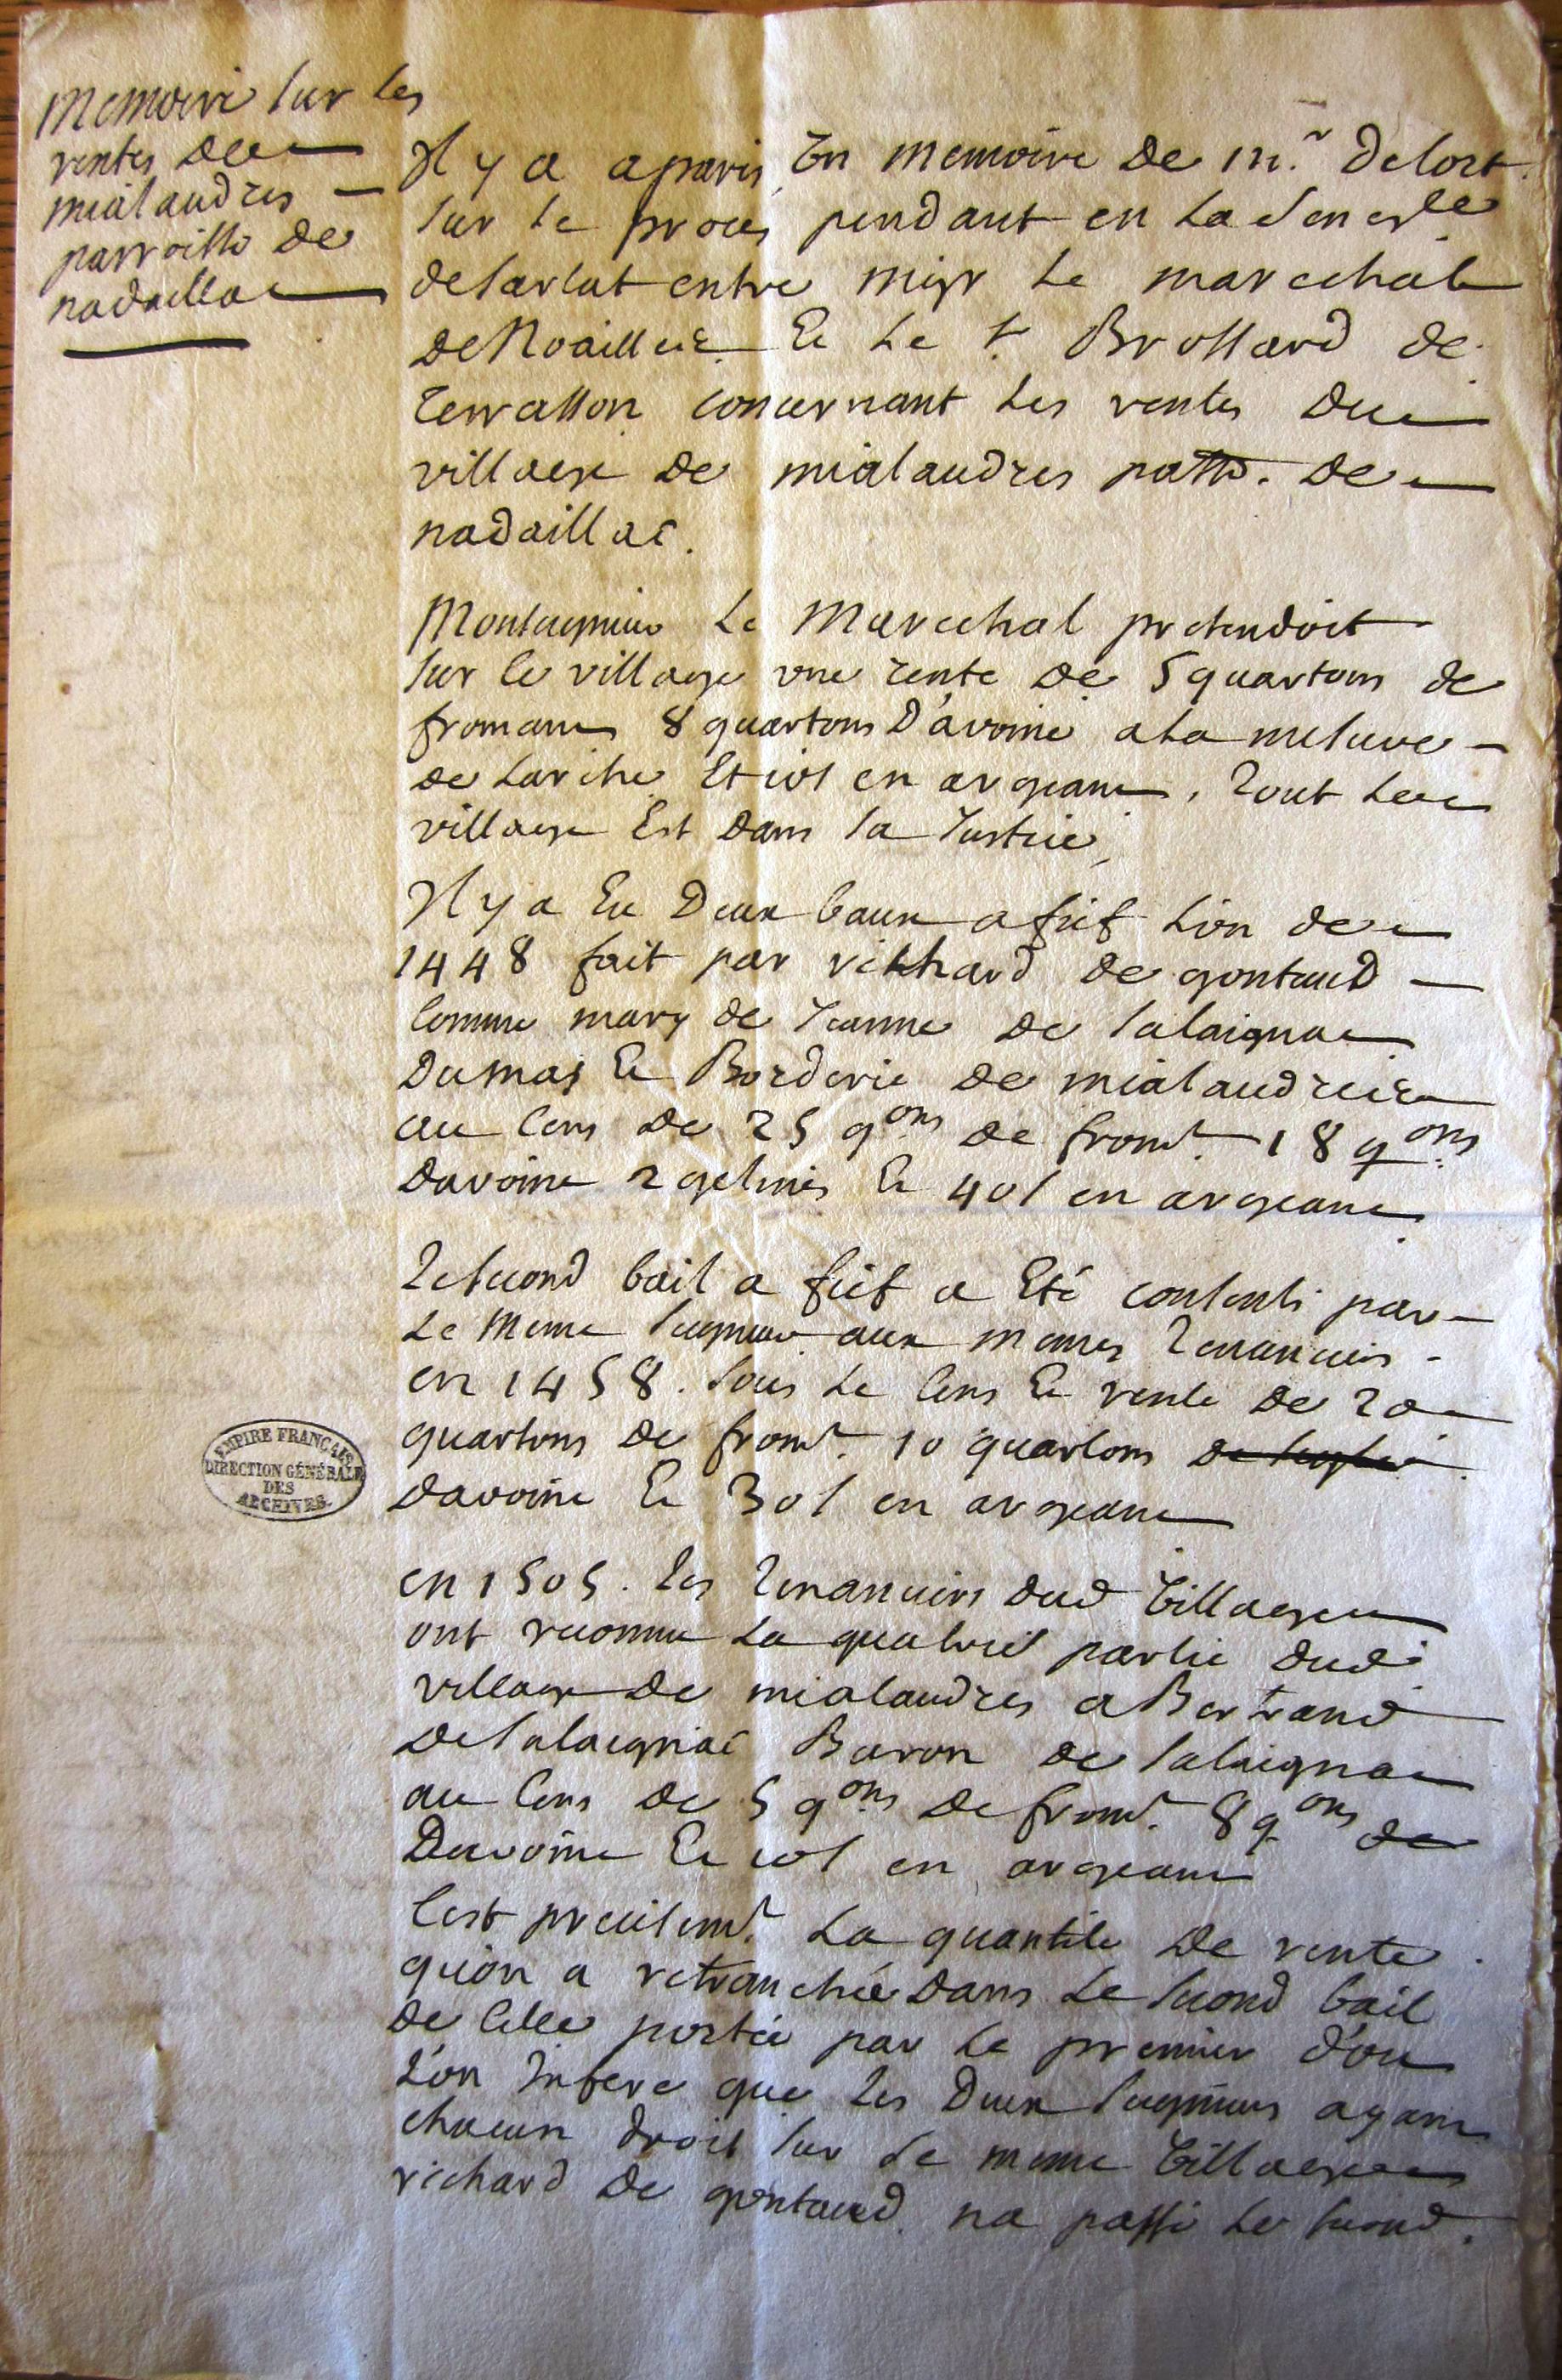 Memoire sur les
rentes de
mialaudres
parroisse de
nadaillac
Il y a a paris un memoire de mr. Delort
sur le procés pendant en la Senesle
de sarlat entre mgr le marechal
de Noailles Et le Sr Brossard de
terrasson concernant les rentes du
village de mialaudres passe. de
nadaillac.
Monseigneur le Marechal pretendoit
sur le village une rente de 5 quartons de
fromant 8 quartons D'avoine a la mesure
de Larche Et 10s en argeant, tout le
village Est dans sa Justice,
Il y a Eu Deux baux a fief L'un de
1448 fait par richard de gontaud
comme mary de Jeanne de salaignac
du mas Et Borderie de mialaudres
au cens de 25 qons de fromt. 18 qons
davoine 2 gelines Et 40s en argeant
le second bail a fief a Eté consenti par
le meme seigneur aux memes tenanciers
en 1458. sous le cens Et rente de 20
quartons de fromt. 10 quartons de seigle
davoine Et 30s en argeant
en 1505. les tenanciers dud village
ont reconnu la quatrie partie dud
village de mialaudres a Bertrand
de salaignac Baron de salaignac
au cens de 5 qons de fromt. 8 qons de
Davoine Et 10s en argeant
cest precisemt. la quantité de rente
qu'on a retranchée dans le second bail
de celle portée par le premier d'ou
l'on infere que les Deux seigneurs ayant
chacun droit sur le meme village
richard de gontaud na passé le second.
EMPIRE FRANÇAIS
DIRECTION GÉNÉRALE
DES
ARCHIVES.